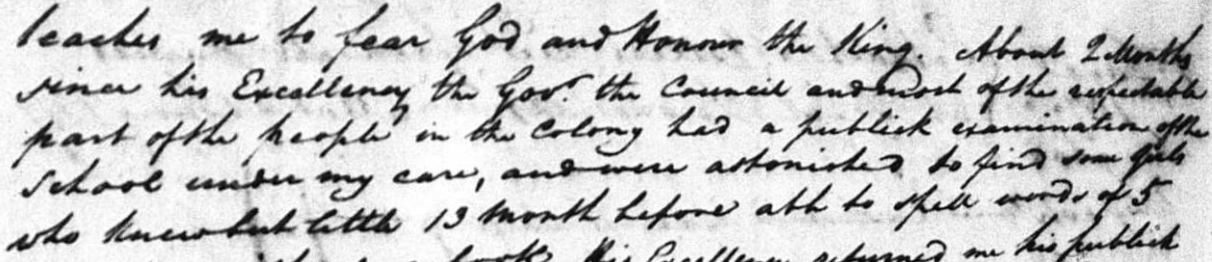 teaches me to fear God and Honour the King. About 2 Months
since his Excellency the Govr. the Council and most of the respectable
part of the people in the Colony had a publick examination of the
School under my care, and were astonished to find some Girls
who knew but little 13 Month before able to spell words of 5
book, His Excellency returned me his publick